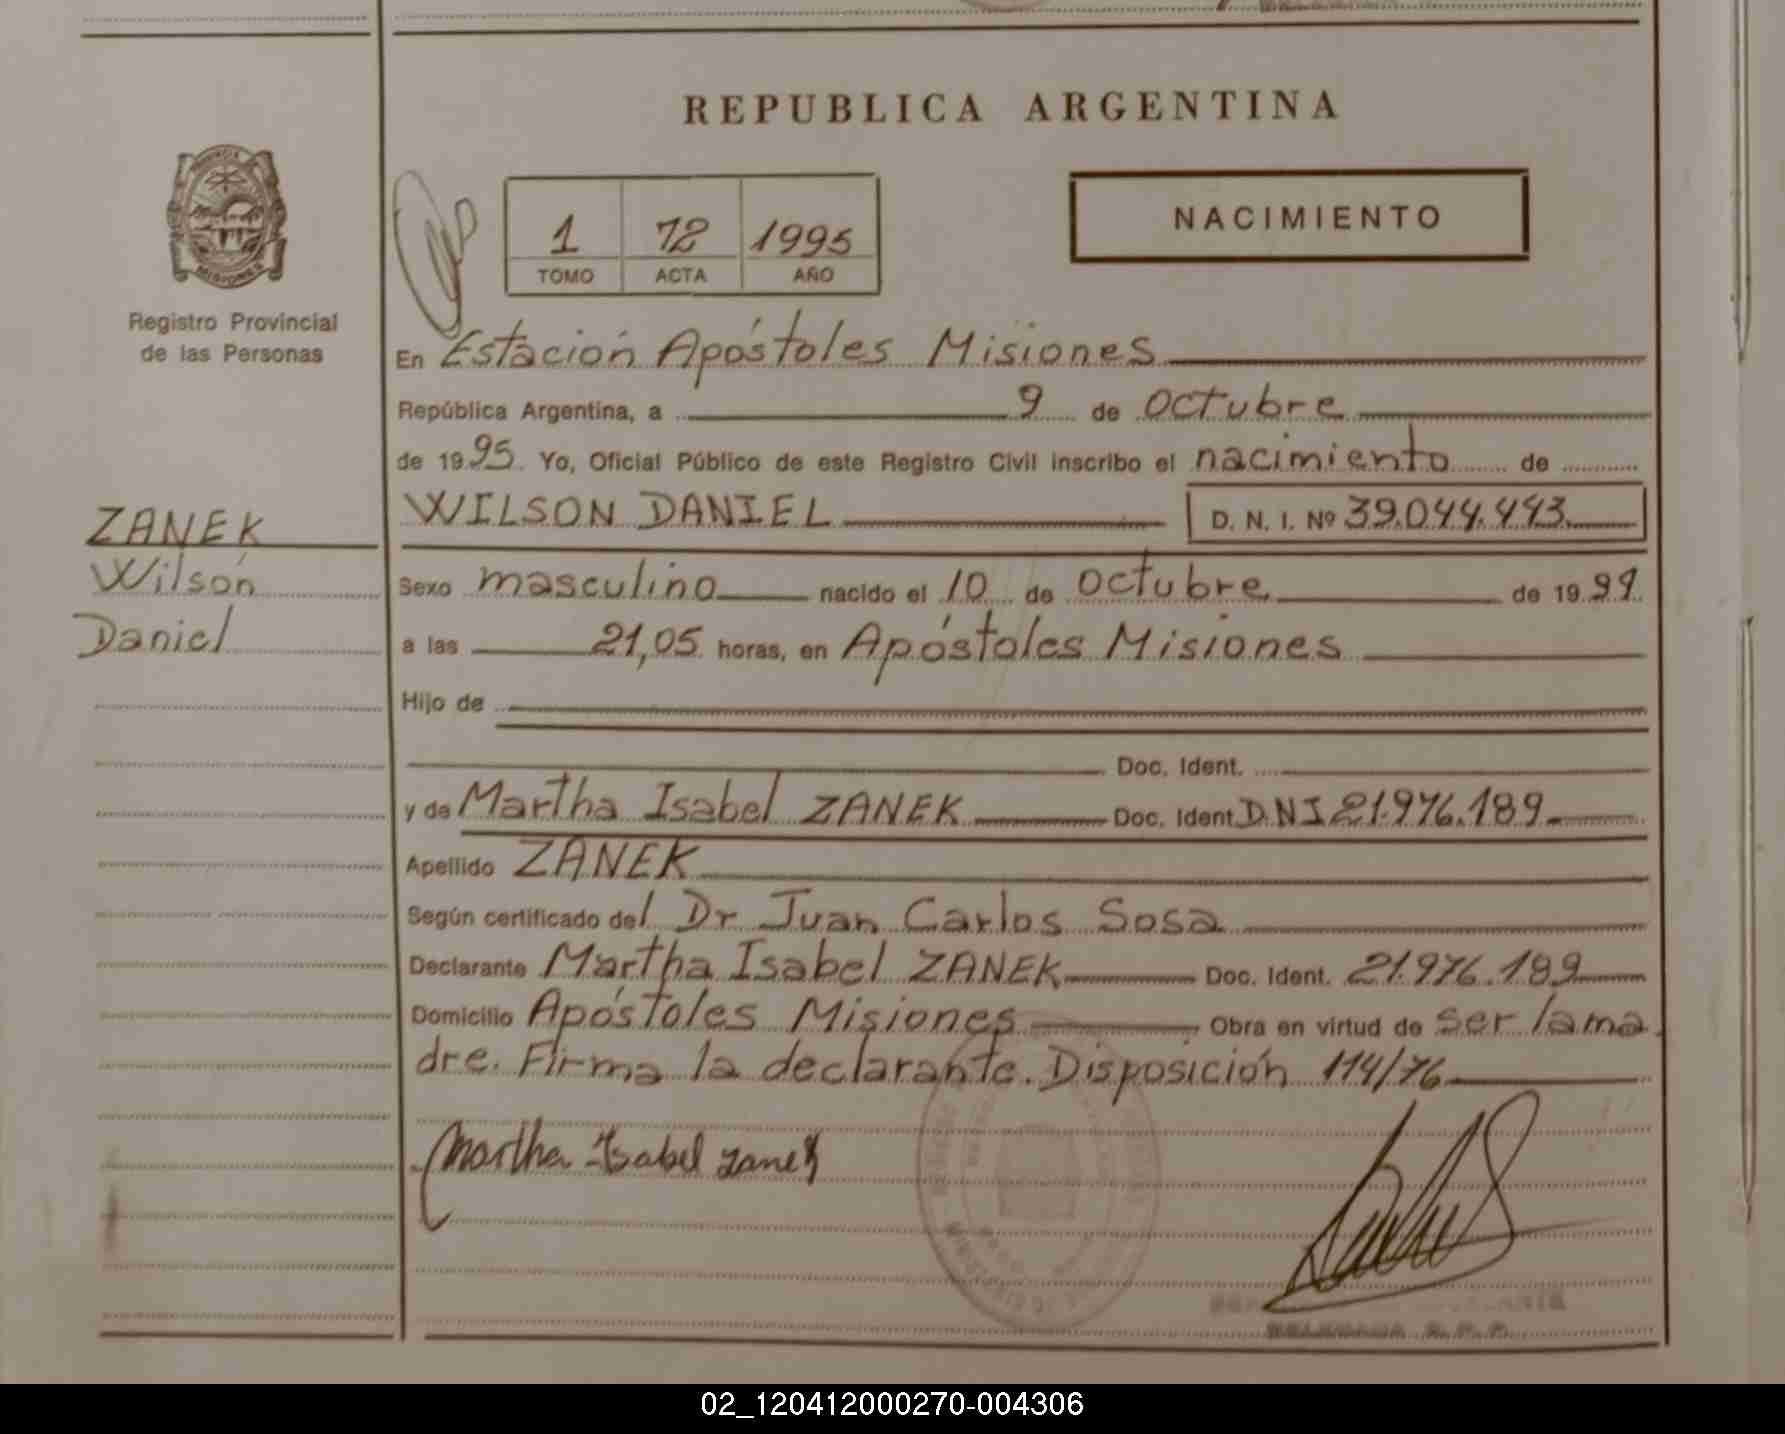 REPUBLICA ARGENTINA
NACIMIENTO
1 72 1995
TOMO ACTA AÑO
PROVINCIA
MISIONES
Registro Provincial
de las Personas
En Estación Apóstoles Misiones
República Argentina, a 9 de octubre
de 1995. Yo, Oficial Público de este Registro Civil inscribo el nacimiento de
ZANEK
Wilson
Daniel
WILSON DANIEL D. N. I. Nº 39.044.443
Sexo masculino nacido el 10 de octubre de 19
a las 21,05 horas, en Apóstoles Misiones
Hijo de
Doc. Ident.
y de Martha Isabel ZANEK Doc. Ident. DNI 21.976.189
Apellido ZANEK
Según certificado del Dr Juan Carlos Sosa
Declarante Martha Isabel ZANEK Doc. Ident. 21.976.189
Domicilio Apóstoles Misiones Obra en virtud de ser la ma
dre. Firma la declarante. Disposición 114/76
Martha Isabel Zanek
02_120412000270-004306